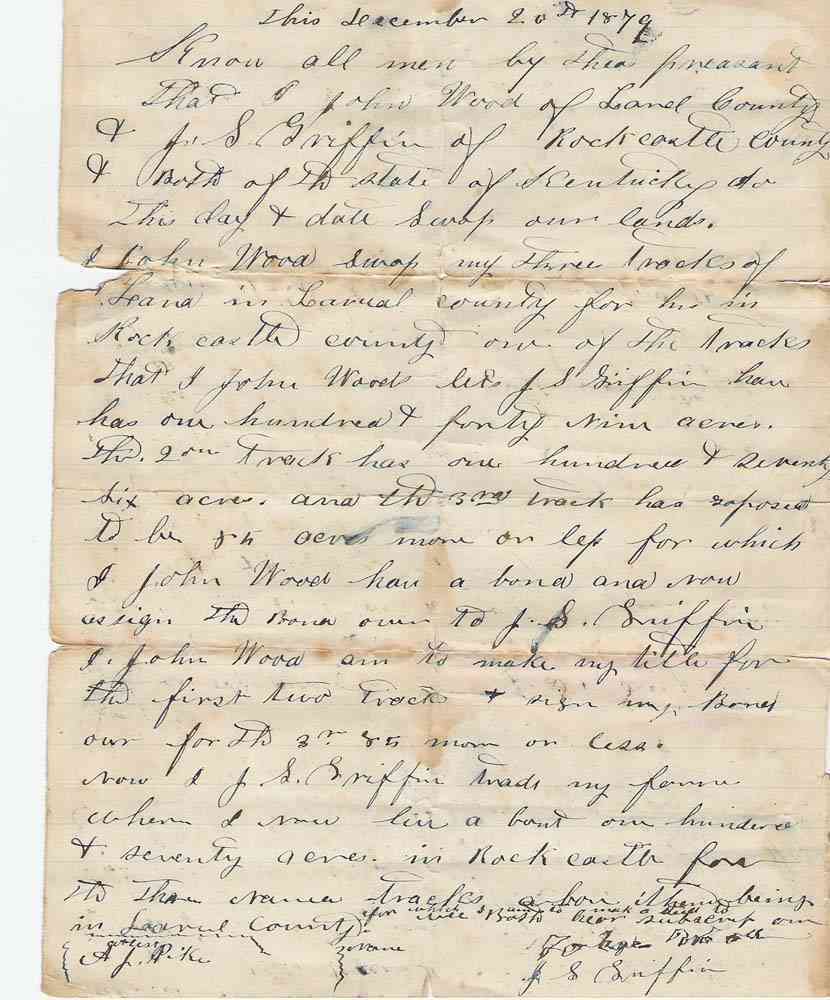 This December 20th 1879
Know all men by thes preasant
That I John Wood of Larel County
& J. S Griffin of Rockcastle county
& Both of th state of Kentucky do
This day & date Swop our lands.
I John Wood Swop my three tracks of
Land in Laruel county for his in
Rock castle county one of the tracks
That I John Woods lets J S Griffin have
has one hundred & forty Nine acres.
The. 2ond track has one hundred & seventy
six acres. and th 3rd track has soposed
to be 85 acres more or less for which
I John Wood have a bond and now
assign the Bond over to J. S. Griffin
I. John Wood am to make my title for
the first two tracks & sign my Bond
over for th 3rd 85 more or less.
Now I J S. Griffin trads my farme
where I now live a bout one hundred
& seventy acres. in Rock castle for
th three Named tracks a bove them being
for which I am to make a deed to
in Laruel County. We Both hear subscrip our
attest Name John Wood
A J. Pike J S Griffin